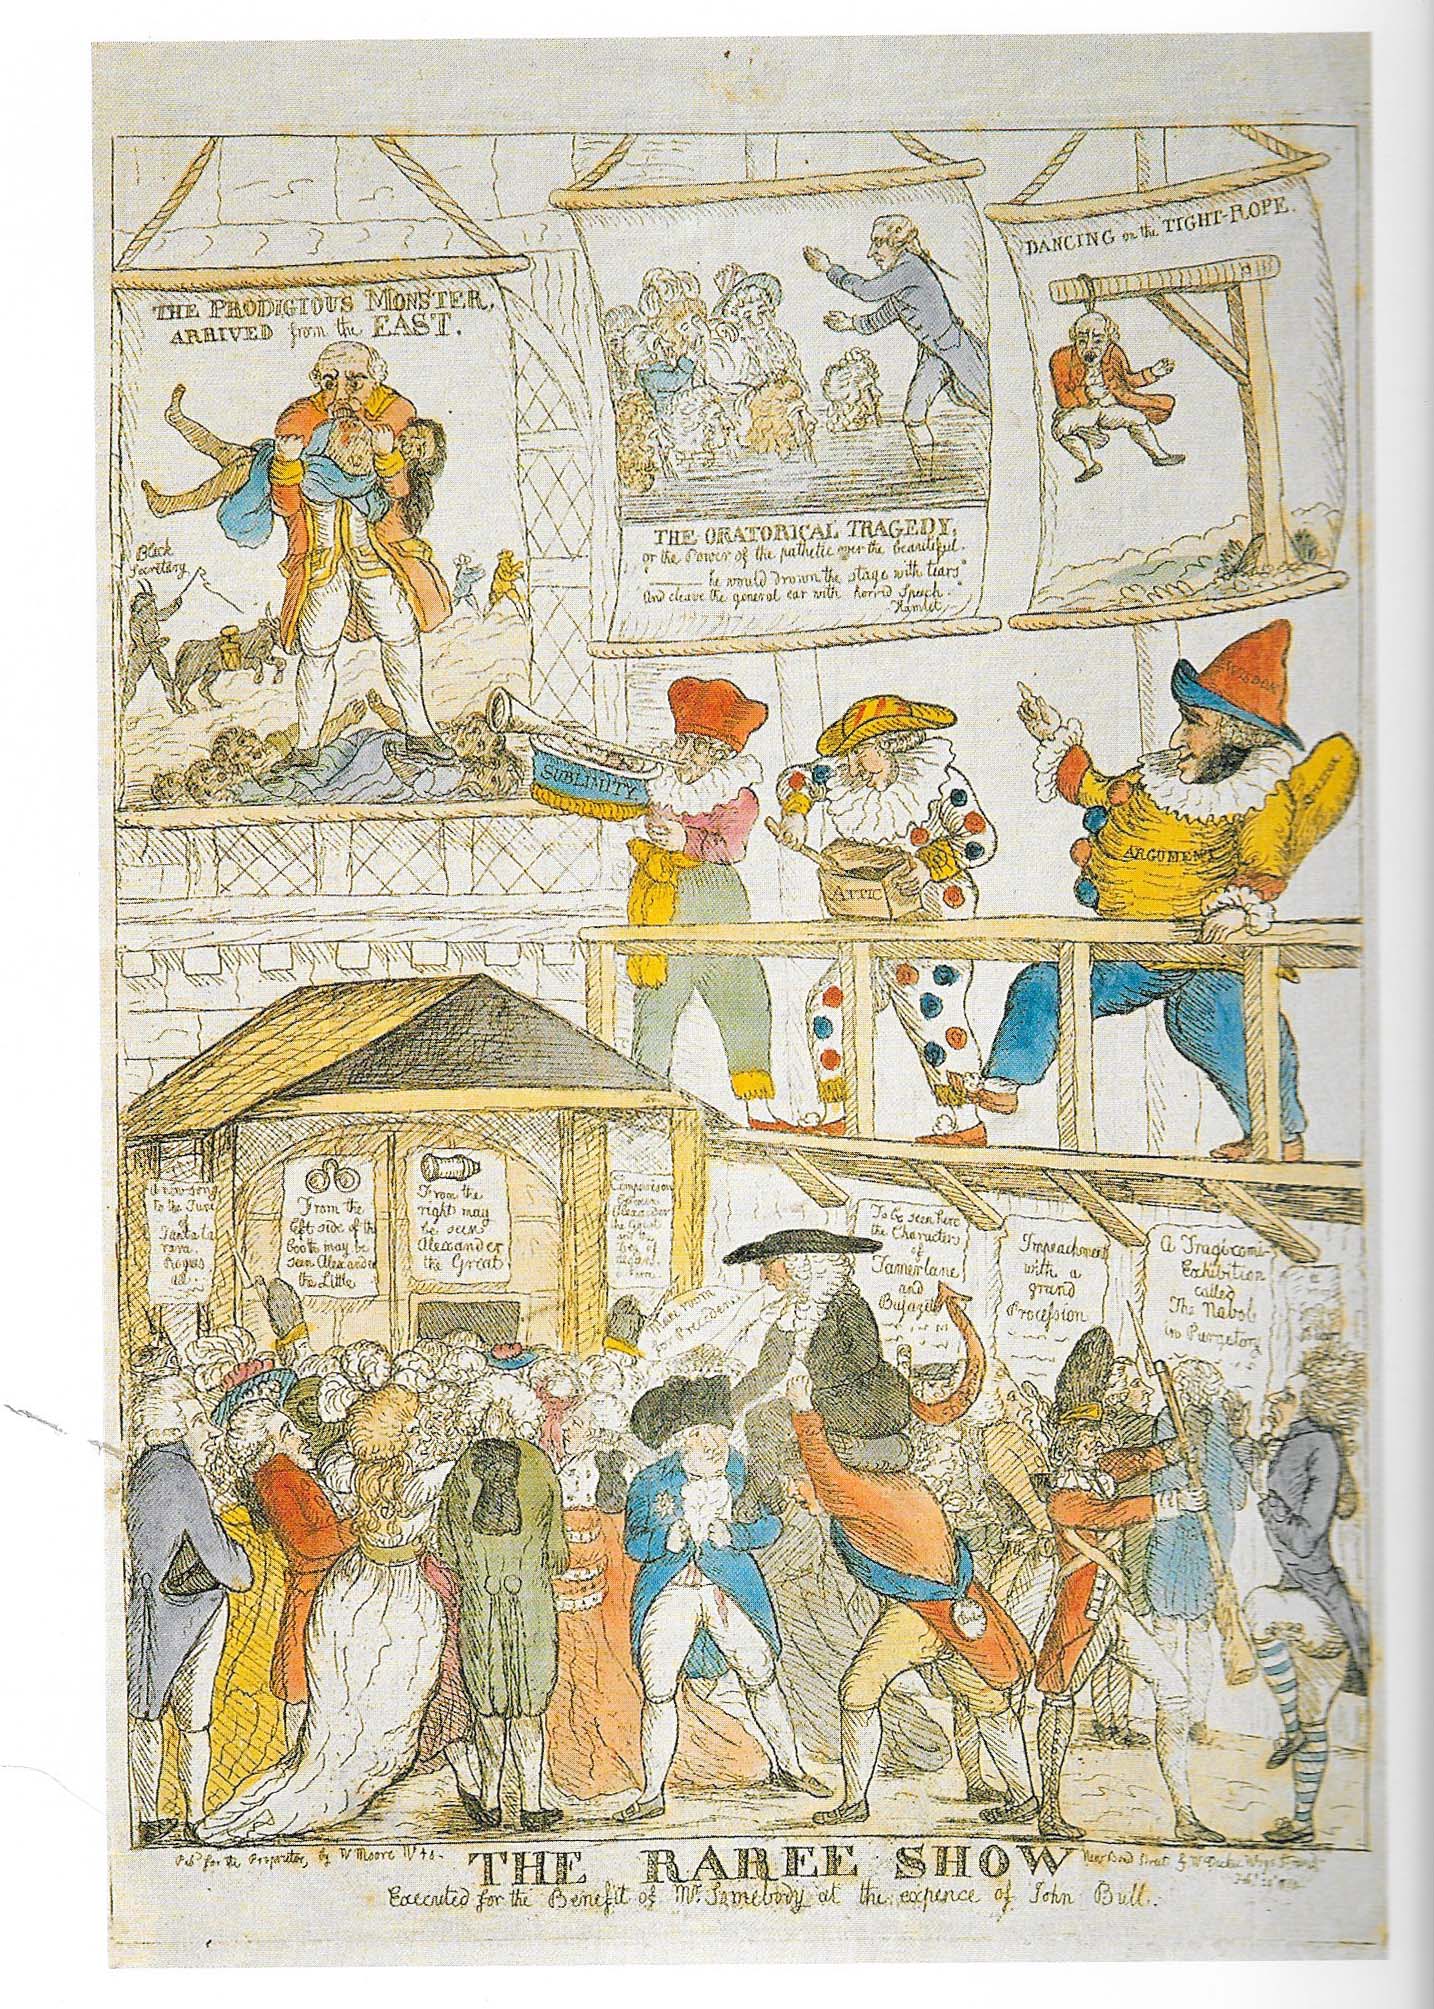 THE PRODIGIOUS MONSTER,
ARRIVED from the EAST.
Black
Secretary
THE ORATORICAL TRAGEDY,
or the Power of the pathetic over the beautiful.
he would drown the stage with tears
And cleave the general ear with horrid Speech.
Hamlet
DANCING on the TIGHT-ROPE.
SUBLIMITY
ATTIC
ARGUMENT
to the Tune
of
rara
Rogues
all.
From the
left side of the
booth may be
seen Alexander
the Little
From the
right may
be seen
Alexander
the Great
Comparison
between
Alexander
the Great
and the
of
To be seen here
the Characters
of
Tamerlane
and
Bajazet
Impeachment
with a
grand
Procession
A Tragicomi-
Exhibition
called
The Nabob
in Purgatory
Make room
for Precedents
Pubd for the Proprietor, by W Moore No 48 New Bond Street & W Dickie
THE RAREE SHOW
Executed for the Benefit of Mr Somebody at the expence of John Bull.